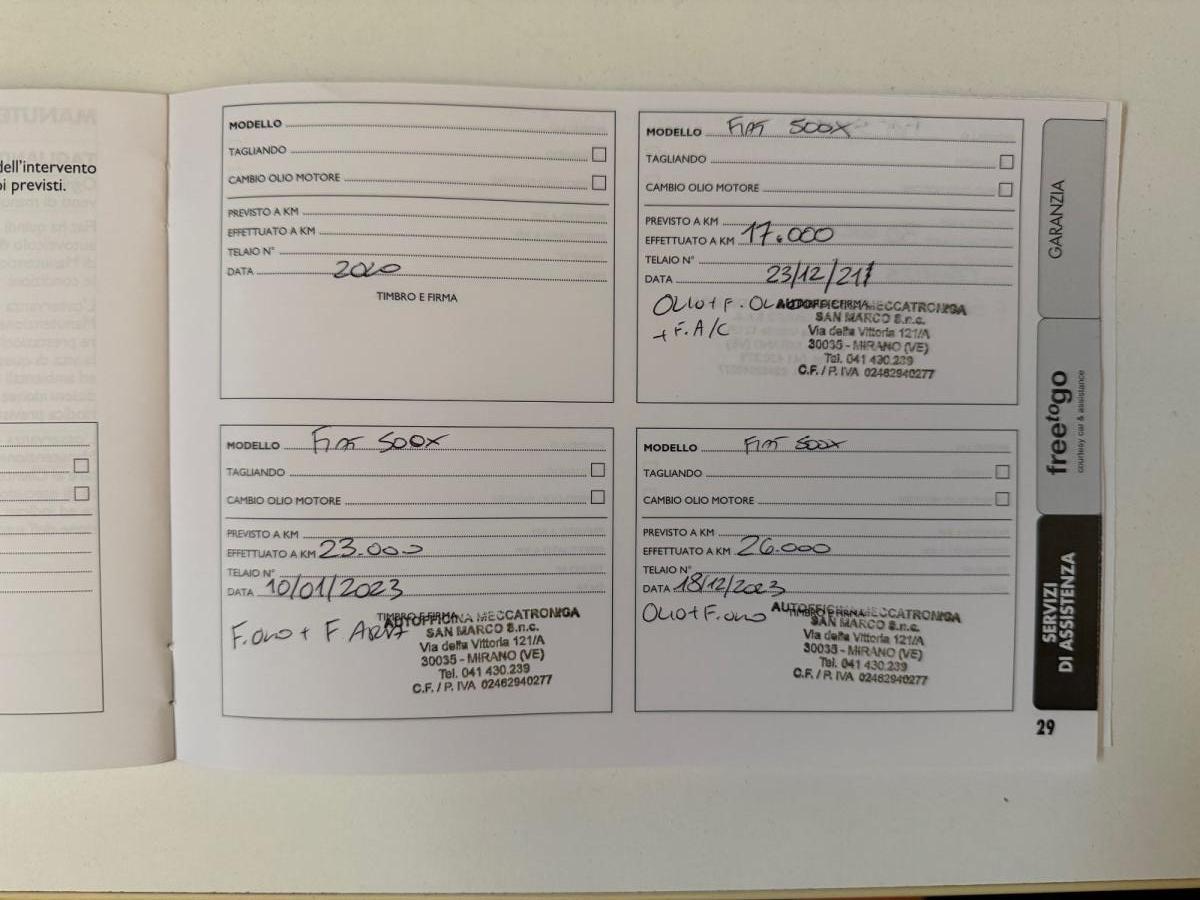 dell'intervento
pi previsti.
MODELLO
TAGLIANDO
CAMBIO OLIO MOTORE
PREVISTO A KM
EFFETTUATO A KM
TELAIO N°
DATA 2020
TIMBRO E FIRMA
MODELLO FIAT 500X
TAGLIANDO
CAMBIO OLIO MOTORE
PREVISTO A KM
EFFETTUATO A KM 17.000
TELAIO N°
DATA 23/12/21
OLIO + F. OLIO
+ F. A/C
AUTOFFICINA MECCATRONICA
SAN MARCO S.n.c.
Via della Vittoria 121/A
30035 - MIRANO (VE)
Tel. 041 430.239
C.F. / P. IVA 02462940277
MODELLO FIAT 500X
TAGLIANDO
CAMBIO OLIO MOTORE
PREVISTO A KM
EFFETTUATO A KM 23.000
TELAIO N°
DATA 10/01/2023
TIMBRO E FIRMA
F. OLIO + F ARIA
AUTOFFICINA MECCATRONICA
SAN MARCO S.n.c.
Via della Vittoria 121/A
30035 - MIRANO (VE)
Tel. 041 430.239
C.F. / P. IVA 02462940277
MODELLO FIAT 500X
TAGLIANDO
CAMBIO OLIO MOTORE
PREVISTO A KM
EFFETTUATO A KM 26.000
TELAIO N°
DATA 18/12/2023
TIMBRO E FIRMA
OLIO + F. OLIO
AUTOFFICINA MECCATRONICA
SAN MARCO S.n.c.
Via della Vittoria 121/A
30035 - MIRANO (VE)
Tel. 041 430.239
C.F. / P. IVA 02462940277
GARANZIA
freetogo
courtesy car & assistance
SERVIZI
DI ASSISTENZA
29